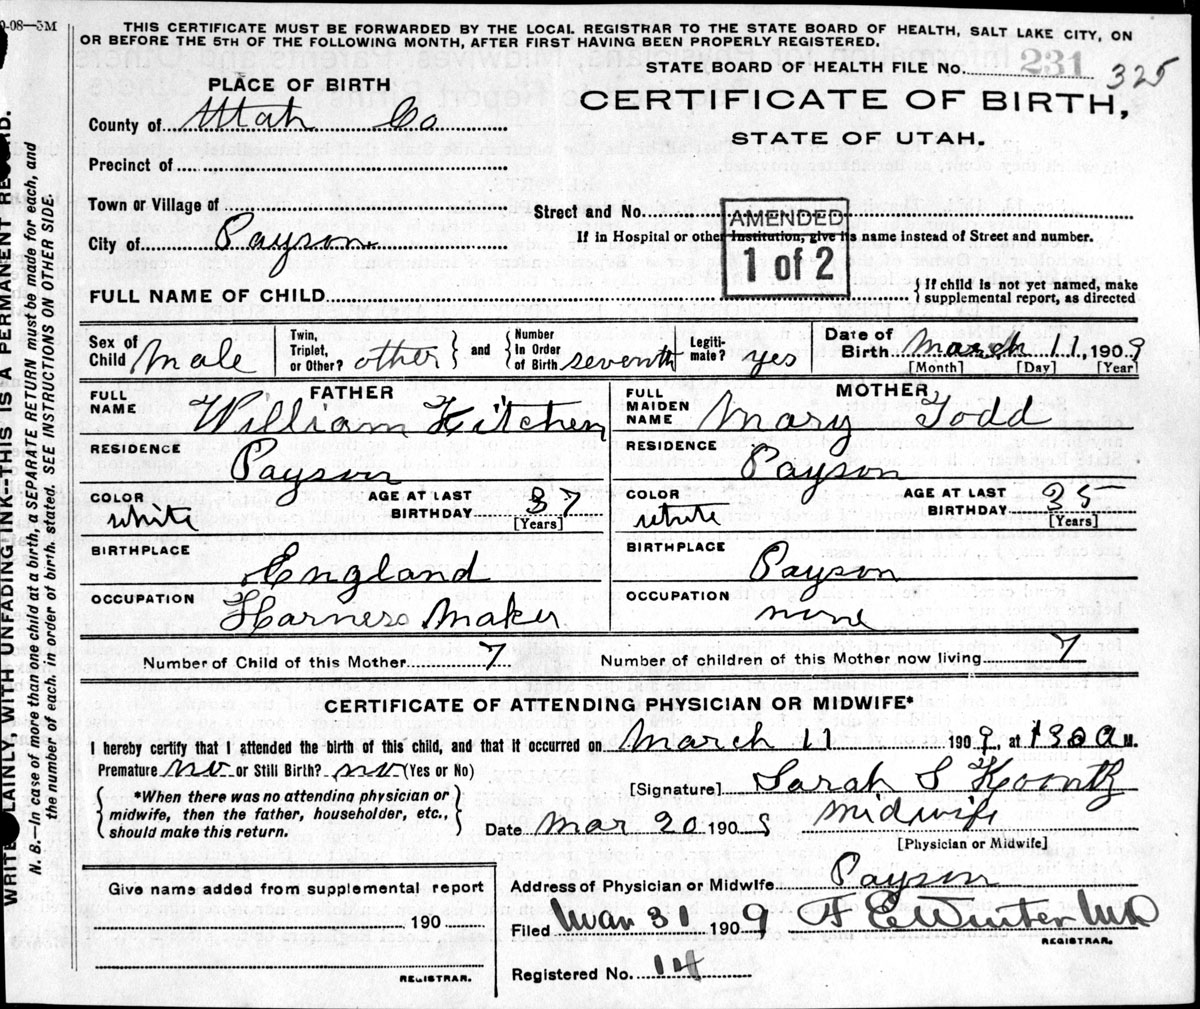 0-08—5M
THIS CERTIFICATE MUST BE FORWARDED BY THE LOCAL REGISTRAR TO THE STATE BOARD OF HEALTH, SALT LAKE CITY, ON
OR BEFORE THE 5TH OF THE FOLLOWING MONTH, AFTER FIRST HAVING BEEN PROPERLY REGISTERED.
STATE BOARD OF HEALTH FILE No. 231 325
PLACE OF BIRTH
CERTIFICATE OF BIRTH,
STATE OF UTAH.
County of Utah Co
Precinct of
Town or Village of
Street and No.
AMENDED
1 of 2
City of Payson
If in Hospital or other Institution, give its name instead of Street and number.
FULL NAME OF CHILD
{ If child is not yet named, make
supplemental report, as directed
Sex of Child Male
Twin, Triplet, or Other? other } and { Number In Order of Birth seventh
Legiti-mate? yes
Date of Birth March 11, 1909
[Month] [Day] [Year]
FATHER
FULL NAME William Kitchen
RESIDENCE Payson
COLOR white
AGE AT LAST BIRTHDAY 37
[Years]
BIRTHPLACE England
OCCUPATION Harness Maker
MOTHER
FULL MAIDEN NAME Mary Todd
RESIDENCE Payson
COLOR white
AGE AT LAST BIRTHDAY 35
[Years]
BIRTHPLACE Payson
OCCUPATION none
Number of Child of this Mother 7
Number of children of this Mother now living 7
CERTIFICATE OF ATTENDING PHYSICIAN OR MIDWIFE*
I hereby certify that I attended the birth of this child, and that it occurred on March 11 1909, at 130 a M.
Premature no or Still Birth? no (Yes or No)
{ *When there was no attending physician or
midwife, then the father, householder, etc.,
should make this return. }
[Signature] Sarah S Koontz
Date Mar 20 1909 midwife
[Physician or Midwife]
Give name added from supplemental report
190
REGISTRAR.
Address of Physician or Midwife Payson
Filed Mar 31 1909 H E Winter
REGISTRAR.
Registered No. 14
WRITE PLAINLY, WITH UNFADING INK--THIS IS A PERMANENT RECORD.
N. B.—In case of more than one child at a birth, a SEPARATE RETURN must be made for each, and
the number of each, in order of birth, stated. SEE INSTRUCTIONS ON OTHER SIDE.